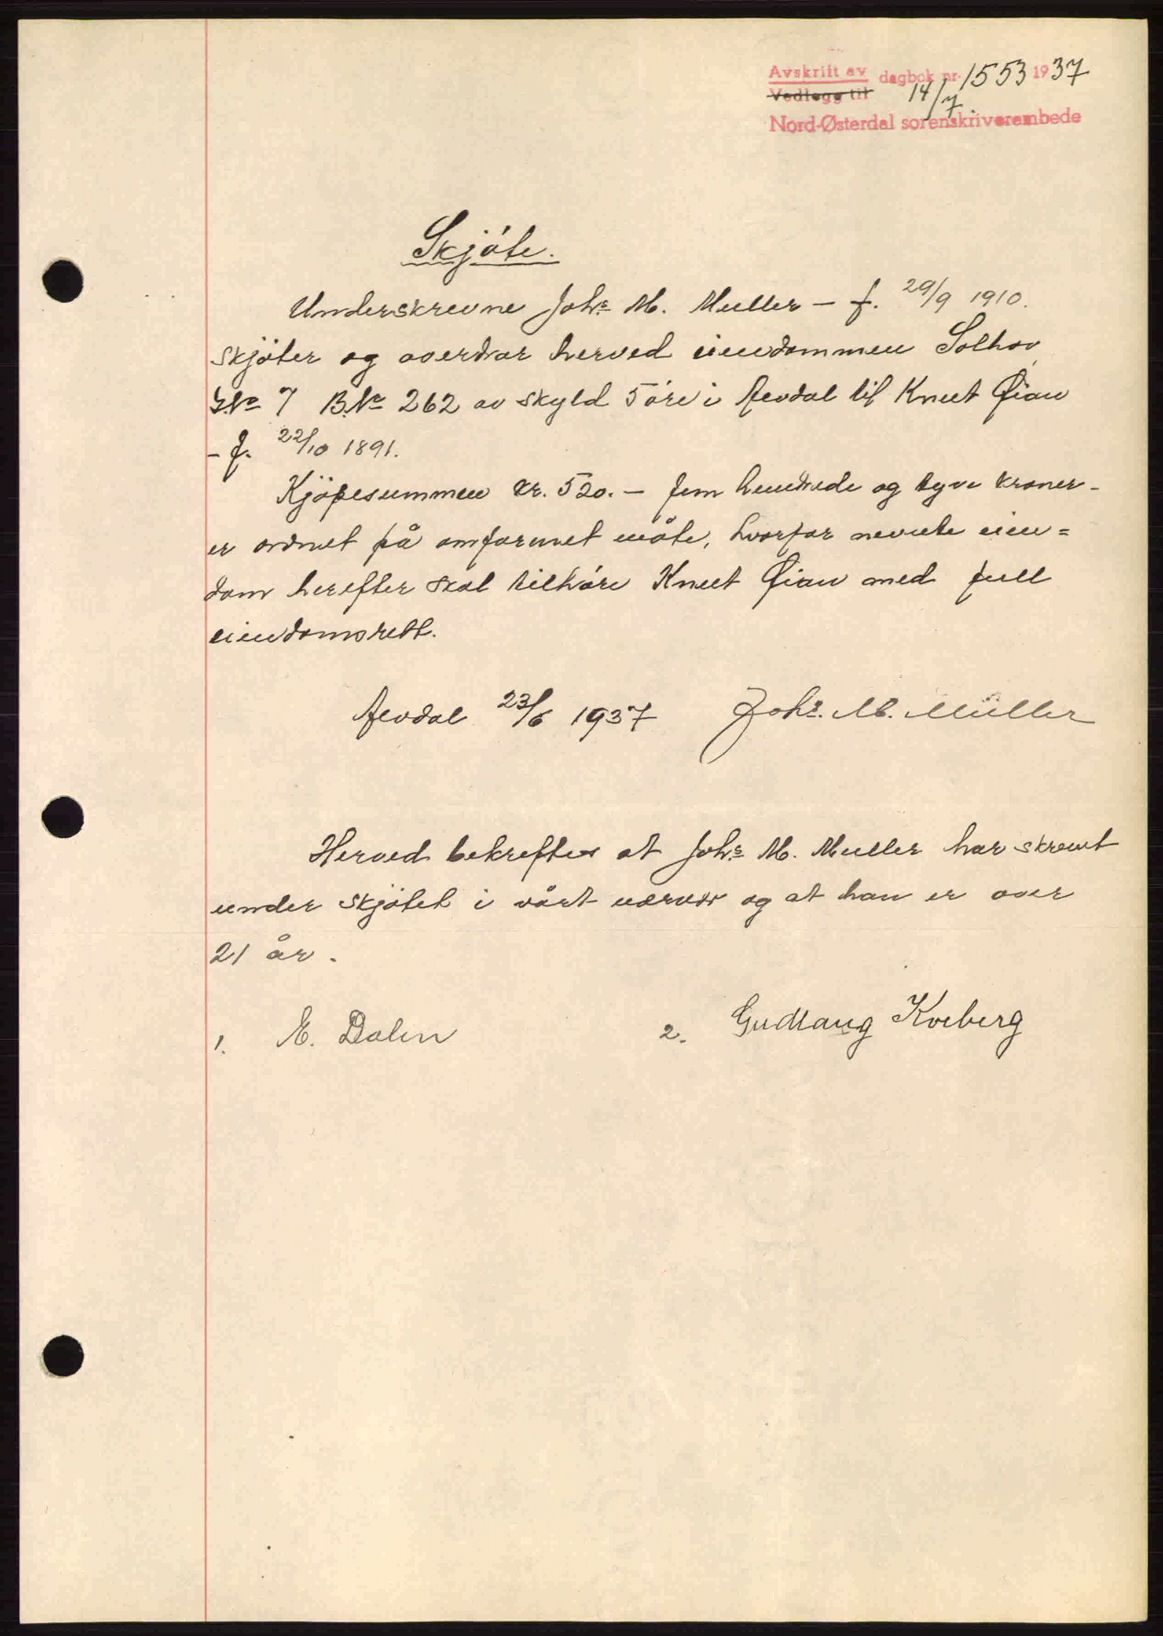 Avskrift av dagbok nr. 1553 1937
Vedlegg til 14/7
Nord-Østerdal sorenskriverembede
Skjöte.
Underskrevne Johs M. Muller – f. 29/9 1910.
skjöter og overdrar herved eiendommen Solhov
G.No 7 B.No 262 av skyld 5 öre i Alvdal til Knut Øian
– f. 22/10 1891.
Kjöpesummen kr. 520. – fem hundrede og tyve kroner –
er ordnet på omforenet måte, hvorfor nevnte eien=
dom herefter skal tilhöre Knut Øian med full
eiendomsrett.
Alvdal 23/6 1937 Johs. M. Müller
Herved bekreftes at Johs M. Muller har skrevet
under skjötet i vårt nærvær og at han er over
21 år.
1. E. Dalen 2. Gudlaug Kveberg